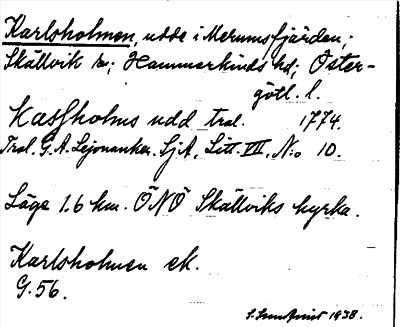 Karlsholmen, udde i Merumsfjärden;
Skällvik sn; Hammarkinds hd; Öster-
götl. l.
Kassholms udd tral. 1774.
Tral. G. A. Lejonanckar. SjA, Litt. VII. N:o 10.
Läge 1.6 km. ÖNÖ Skällviks kyrka.
Karlsholmen ek.
G. 56.
S. Sundqvist 1938.